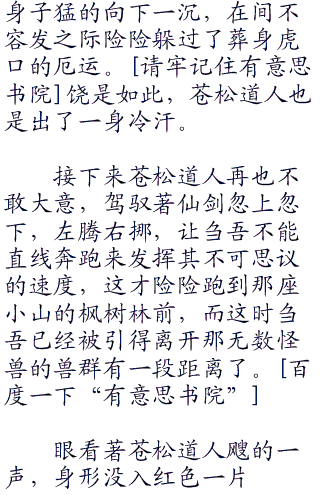 身子猛的向下一沉，在间不
容发之际险险躲过了葬身虎
口的厄运。[请牢记住有意思
书院]饶是如此，苍松道人也
是出了一身冷汗。
接下来苍松道人再也不
敢大意，驾驭著仙剑忽上忽
下，左腾右挪，让刍吾不能
直线奔跑来发挥其不可思议
的速度，这才险险跑到那座
小山的枫树林前，而这时刍
吾已经被引得离开那无数怪
兽的兽群有一段距离了。[百
度一下“有意思书院”]
眼看著苍松道人飕的一
声，身形没入红色一片